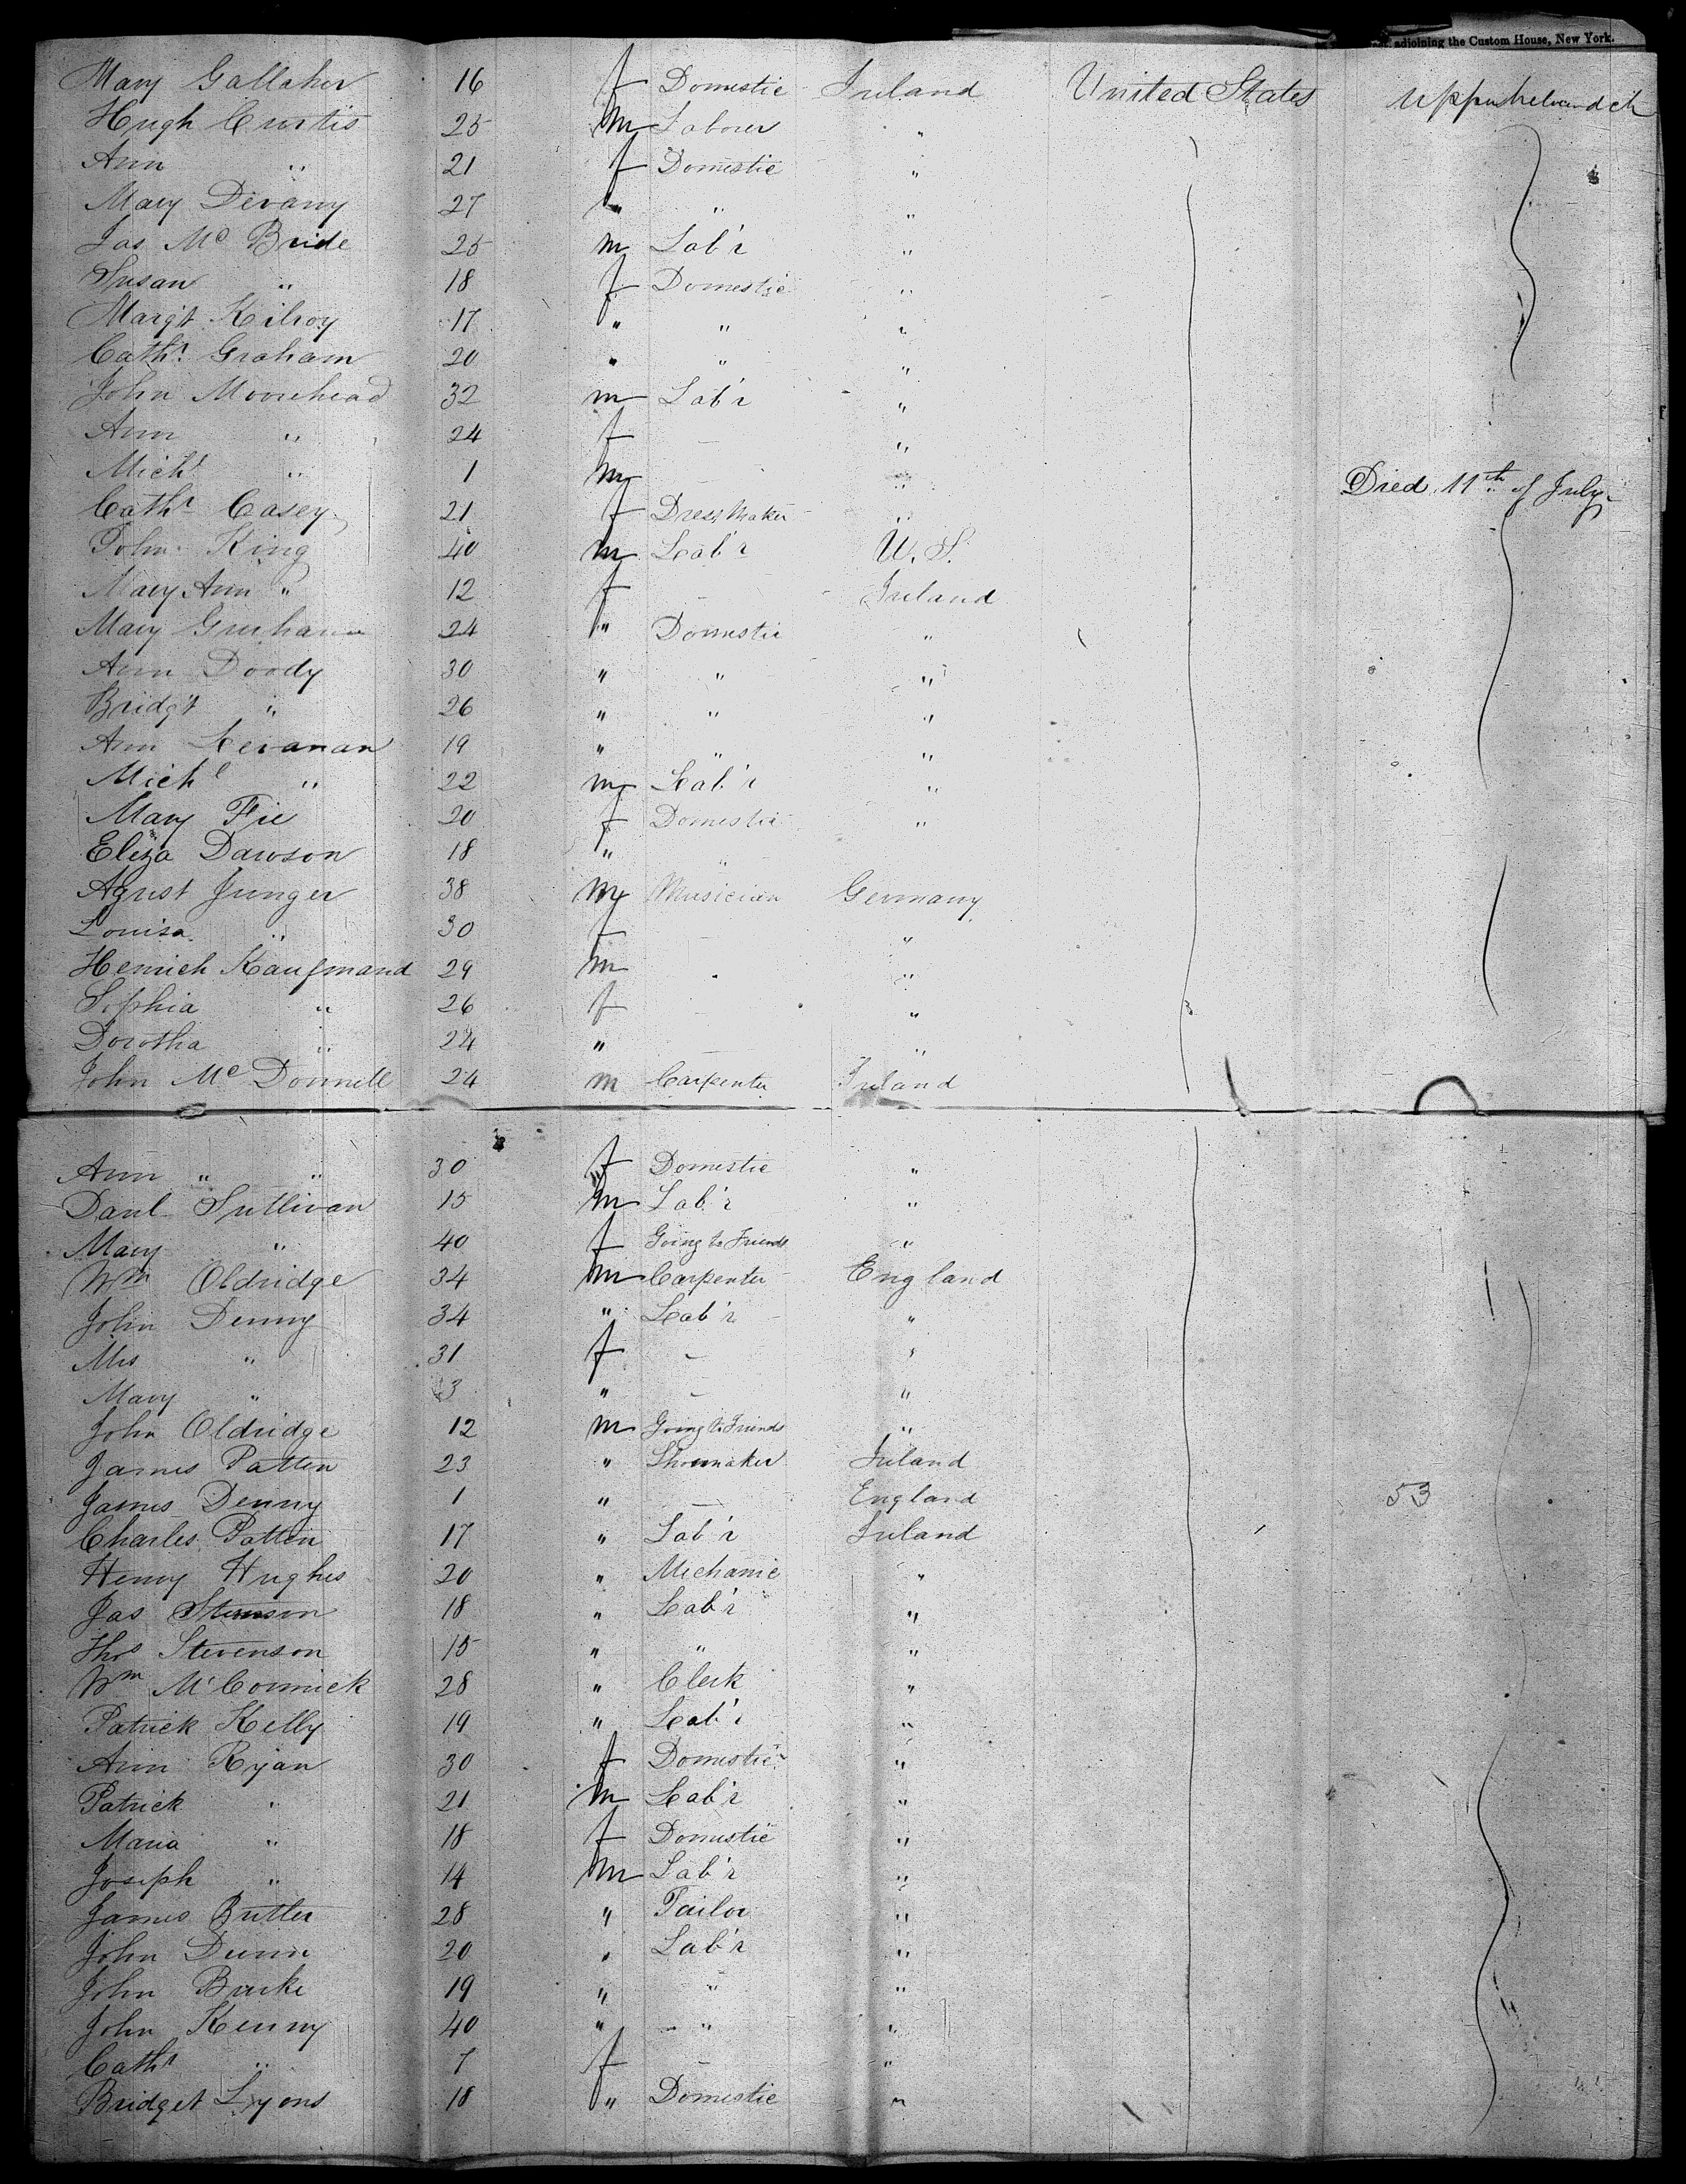 adjoining the Custom House, New York.
Mary Gallaher 16 f Domestic Ireland United States
Hugh Curtis 25 m Labourer "
Ann " 21 f Domestic "
Mary Devany 27 " " "
Jas Mc Bride 25 m Lab'r "
Susan " 18 f Domestic "
Marg't Kilroy 17 " " "
Cathr. Graham 20 " " "
John Moorehead 32 m Lab'r "
Ann " 24 f - "
Michl " 1 m - " Died 11th of July
Cathr Casey 21 f Dress Maker "
John King 40 m Lab'r U.S.
Mary Ann " 12 f - Ireland
Mary 24 " Domestic "
Ann Doody 30 " " "
Bridg't " 26 " " "
Ann 19 " " "
Michl " 22 m Lab'r "
Mary Fie 20 f Domestic "
Eliza Dawson 18 " " "
Agust Junger 38 m Musician Germany
Louisa " 30 f - "
Henrich Kaufmand 29 m - "
Sophia " 26 f - "
Dorotha " 24 " - "
John Mc Donnell 24 m Carpenter Ireland
Ann " " 30 f Domestic "
Danl Sullivan 15 m Lab'r "
Mary " 40 f Going to Friends "
Wm Oldridge 34 m Carpenter England
John Denny 34 " Lab'r "
Mrs " 31 f - "
Mary " 3 " - "
John Oldridge 12 m Going to Friends "
James Patten 23 " Shoemaker Ireland
James Denny 1 " - England 53
Charles Patten 17 " Lab'r Ireland
Henry Hughes 20 " Mechanic "
Jas 18 " Lab'r "
Thos Stevenson 15 " " "
Wm McCormick 28 " Clerk "
Patrick Kelly 19 " Lab'r "
Ann Ryan 30 f Domestic "
Patrick " 21 m Lab'r "
Maria " 18 f Domestic "
Joseph " 14 m Lab'r "
James Butler 28 " Tailor "
John Dunn 20 " Lab'r "
John Burke 19 " " "
John Kenny 40 " " "
Cathr " 7 f - "
Bridget Lyons 18 " Domestic "